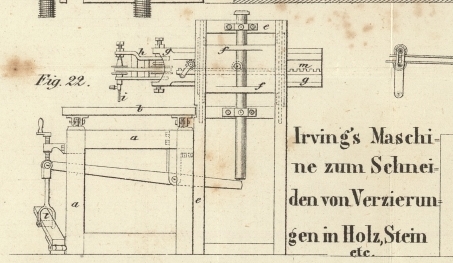 Fig. 22.
h
g
f
e
m
g
f
i
b
a
a
e
t
Irving's Maschi-
ne zum Schnei-
den von Verzierun-
gen in Holz, Stein
etc.